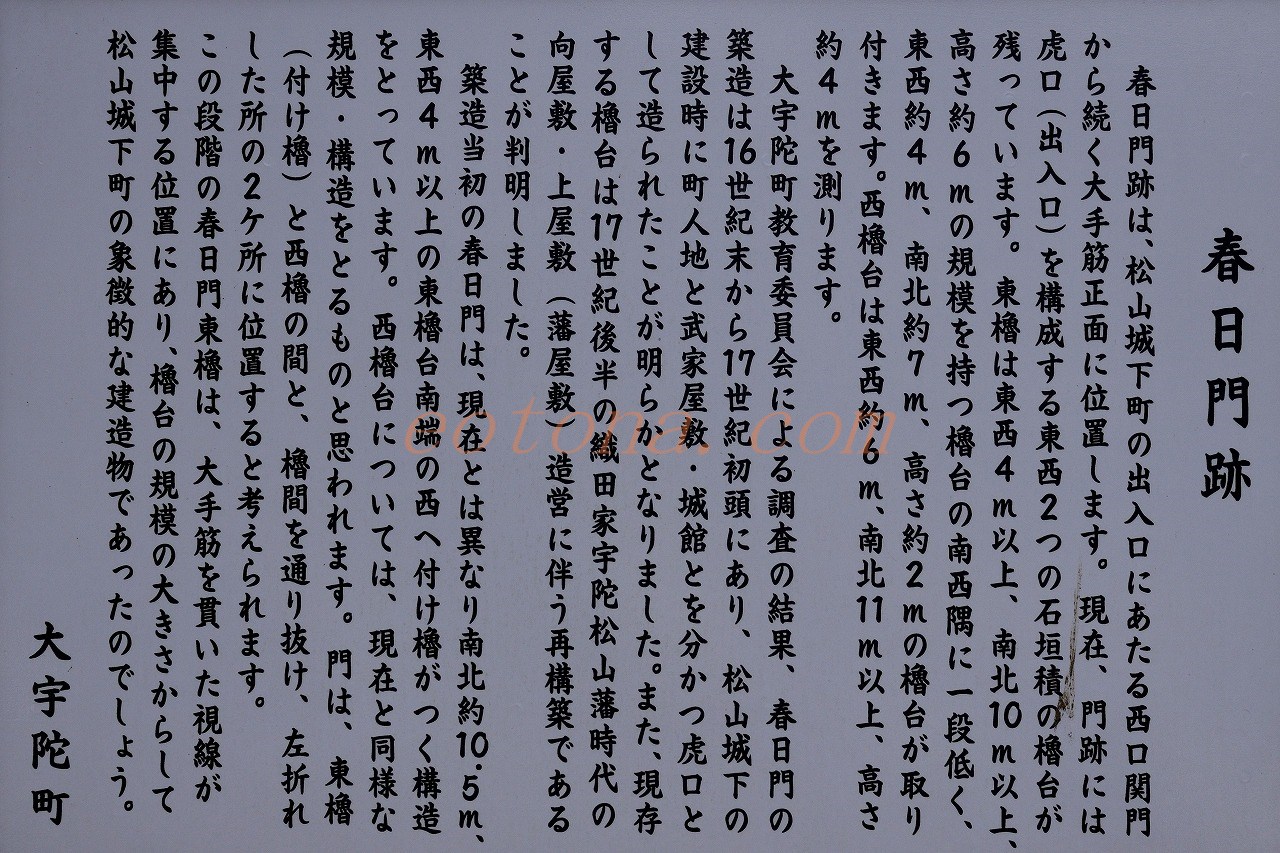 春日門跡
春日門跡は、松山城下町の出入口にあたる西口関門
から続く大手筋正面に位置します。現在、門跡には
虎口（出入口）を構成する東西2つの石垣積の櫓台が
残っています。東櫓は東西4m以上、南北10m以上、
高さ約6mの規模を持つ櫓台の南西隅に一段低く、
東西約4m、南北約7m、高さ約2mの櫓台が取り
付きます。西櫓台は東西約6m、南北11m以上、高さ
約4mを測ります。
大宇陀町教育委員会による調査の結果、春日門の
築造は16世紀末から17世紀初頭にあり、松山城下の
建設時に町人地と武家屋敷・城館とを分かつ虎口と
して造られたことが明らかとなりました。また、現存
する櫓台は17世紀後半の織田家宇陀松山藩時代の
向屋敷・上屋敷（藩屋敷）造営に伴う再構築である
ことが判明しました。
築造当初の春日門は、現在とは異なり南北約10.5m、
東西4m以上の東櫓台南端の西へ付け櫓がつく構造
をとっています。西櫓台については、現在と同様な
規模・構造をとるものと思われます。門は、東櫓
（付け櫓）と西櫓の間と、櫓間を通り抜け、左折れ
した所の2ケ所に位置すると考えられます。
この段階の春日門東櫓は、大手筋を貫いた視線が
集中する位置にあり、櫓台の規模の大きさからして
松山城下町の象徴的な建造物であったのでしょう。
大宇陀町
eotona.com